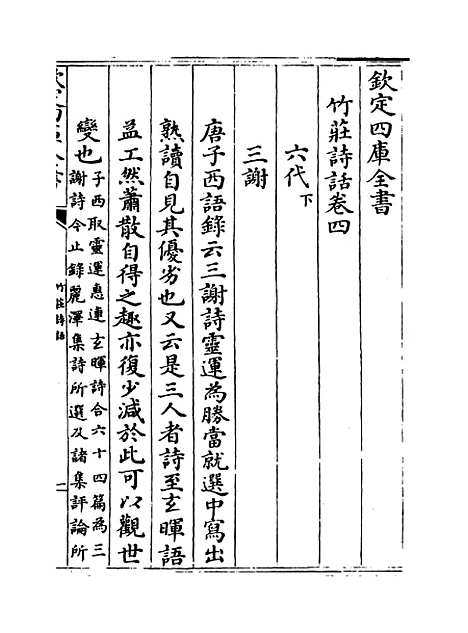 欽定四庫全書
竹莊詩話卷四
六代下
三謝
唐子西語錄云三謝詩靈運為勝當就選中寫出
熟讀自見其優劣也又云是三人者詩至玄暉語
益工然蕭散自得之趣亦復少減於此可以觀世
變也子西取靈運惠連玄暉詩合六十四篇為三
謝詩今止錄麗澤集詩所選及諸集評論所
欽定四庫全書
竹莊詩話
一